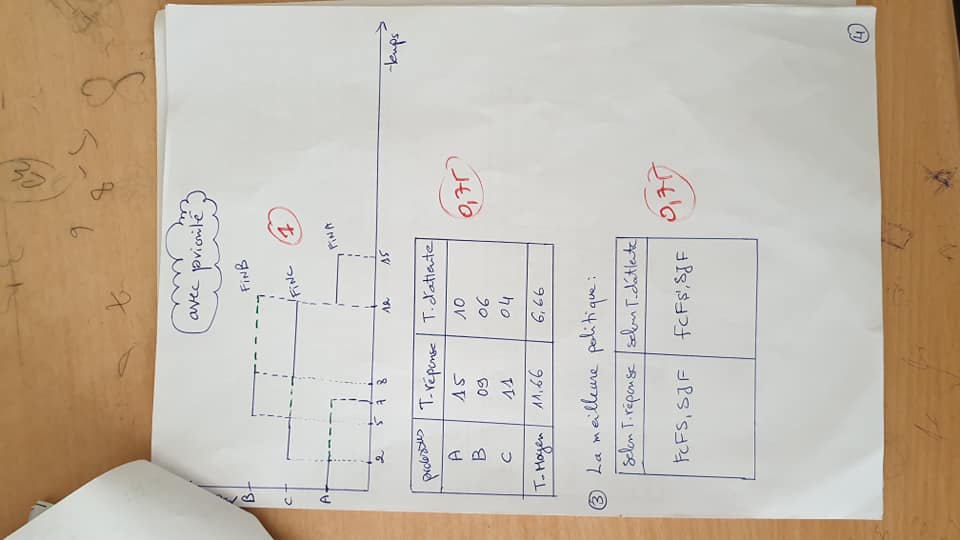 avec priorité
B
FiNB
C
FiNC
1
A
FiNA
2 5 7 8 12 15
temps
processus T-réponse T.d'attente
0,75
A 15 10
B 09 06
C 11 04
T-Moyen 11,66 6,66
③ La meilleure politique:
selon T-réponse selon T.d'attente
0,75
FCFS, SJF FCFS, SJF
④